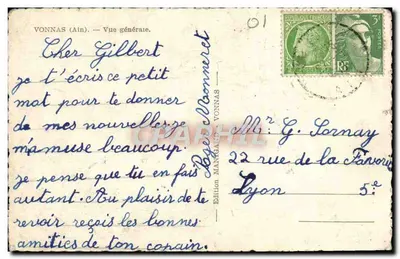 VONNAS (Ain). — Vue générale.
01
Cher Gilbert
je t'écris ce petit
mot pour te donner
de mes nouvelles je
m'amuse beaucoup.
je pense que tu en fais
autant. Au plaisir de te
revoir reçois les bonnes
amitiés de ton copain.
Roger Monneret
Edition
VONNAS
3F
RF
Mr G. Lornay
22 rue de la Favorite
Lyon 5e